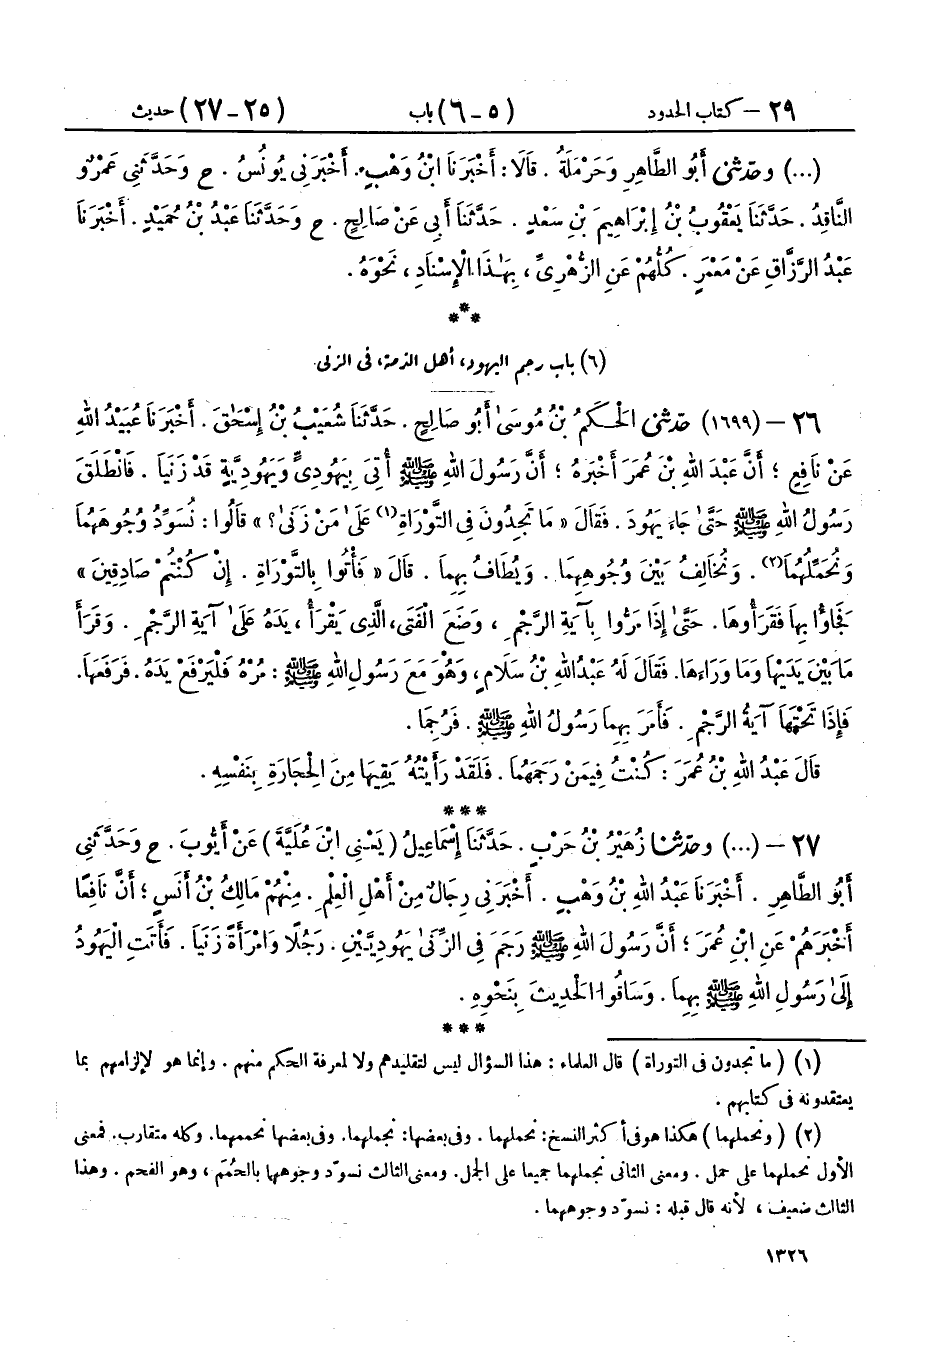 ٢٩ — كتاب الحدود (٥ - ٦) باب (٢٥ - ٢٧) حديث
(...) وحدثني أَبُو الطَّاهِرِ وَحَرْمَلَةُ . قَالَا : أَخْبَرَنَا ابْنُ وَهْبٍ . أَخْبَرَنِي يُونُسُ . ح وَحَدَّثَنِي عَمْرٌو
النَّاقِدُ . حَدَّثَنَا يَعْقُوبُ بْنُ إِبْرَاهِيمَ بْنِ سَعْدٍ . حَدَّثَنَا أَبِي عَنْ صَالِحٍ . ح وَحَدَّثَنَا عَبْدُ بْنُ حُمَيْدٍ . أَخْبَرَنَا
عَبْدُ الرَّزَّاقِ عَنْ مَعْمَرٍ . كُلُّهُمْ عَنِ الزُّهْرِيِّ ، بِهَٰذَا الْإِسْنَادِ ، نَحْوَهُ .
***
(٦) باب رجم اليهود، أهل الذمة، في الزنى
٢٦ — (١٦٩٩) حدثني الْحَكَمُ بْنُ مُوسَىٰ أَبُو صَالِحٍ . حَدَّثَنَا شُعَيْبُ بْنُ إِسْحَٰقَ . أَخْبَرَنَا عُبَيْدُ اللهِ
عَنْ نَافِعٍ ؛ أَنَّ عَبْدَ اللهِ بْنَ عُمَرَ أَخْبَرَهُ ؛ أَنَّ رَسُولَ اللهِ ﷺ أُتِيَ بِيَهُودِيٍّ وَيَهُودِيَّةٍ قَدْ زَنَيَا . فَانْطَلَقَ
رَسُولُ اللهِ ﷺ حَتَّىٰ جَاءَ يَهُودَ . فَقَالَ « مَا تَجِدُونَ فِي التَّوْرَاةِ(١) عَلَىٰ مَنْ زَنَىٰ؟ » قَالُوا : نُسَوِّدُ وُجُوهَهُمَا
وَنُحَمِّلُهُمَا(٢) . وَنُخَالِفُ بَيْنَ وُجُوهِهِمَا . وَيُطَافُ بِهِمَا . قَالَ « فَأْتُوا بِالتَّوْرَاةِ . إِنْ كُنْتُمْ صَادِقِينَ »
فَجَاؤُا بِهَا فَقَرَأُوهَا . حَتَّىٰ إِذَا مَرُّوا بِآيَةِ الرَّجْمِ ، وَضَعَ الْفَتَى، الَّذِي يَقْرَأُ ، يَدَهُ عَلَىٰ آيَةِ الرَّجْمِ . وَقَرَأَ
مَا بَيْنَ يَدَيْهَا وَمَا وَرَاءَهَا. فَقَالَ لَهُ عَبْدُ اللهِ بْنُ سَلَامٍ، وَهُوَ مَعَ رَسُولِ اللهِ ﷺ : مُرْهُ فَلْيَرْفَعْ يَدَهُ . فَرَفَعَهَا.
فَإِذَا تَحْتَهَا آيَةُ الرَّجْمِ . فَأَمَرَ بِهِمَا رَسُولُ اللهِ ﷺ . فَرُجِمَا .
قَالَ عَبْدُ اللهِ بْنُ عُمَرَ : كُنْتُ فِيمَنْ رَجَمَهُمَا . فَلَقَدْ رَأَيْتُهُ يَقِيهَا مِنَ الْحِجَارَةِ بِنَفْسِهِ .
***
٢٧ — (...) وحدثنا زُهَيْرُ بْنُ حَرْبٍ . حَدَّثَنَا إِسْمَاعِيلُ ( يَعْنِي ابْنَ عُلَيَّةَ ) عَنْ أَيُّوبَ . ح وَحَدَّثَنِي
أَبُو الطَّاهِرِ . أَخْبَرَنَا عَبْدُ اللهِ بْنُ وَهْبٍ . أَخْبَرَنِي رِجَالٌ مِنْ أَهْلِ الْعِلْمِ . مِنْهُمْ مَالِكُ بْنُ أَنَسٍ ؛ أَنَّ نَافِعًا
أَخْبَرَهُمْ عَنِ ابْنِ عُمَرَ ؛ أَنَّ رَسُولَ اللهِ ﷺ رَجَمَ فِي الزِّنَىٰ يَهُودِيَّيْنِ . رَجُلًا وَامْرَأَةً زَنَيَا . فَأَتَتِ الْيَهُودُ
إِلَىٰ رَسُولِ اللهِ ﷺ بِهِمَا . وَسَاقُوا الْحَدِيثَ بِنَحْوِهِ .
***
(١) ( ما تجدون في التوراة ) قال العلماء : هذا السؤال ليس لتقليدهم ولا لمعرفة الحكم منهم . وإنما هو لإلزامهم بما
يعتقدونه في كتابهم .
(٢) ( ونحملهما ) هكذا هو في أكثر النسخ : نحملهما . وفي بعضها : نجملهما. وفي بعضها نحممهما. وكله متقارب. فمعنى
الأول نحملهما على حمل . ومعنى الثاني نجملهما جميعا على الجمل. ومعنى الثالث نسوّد وجوههما بالحُمَم ، وهو الفحم . وهذا
الثالث ضعيف ، لأنه قال قبله : نسوّد وجوههما .
١٣٢٦